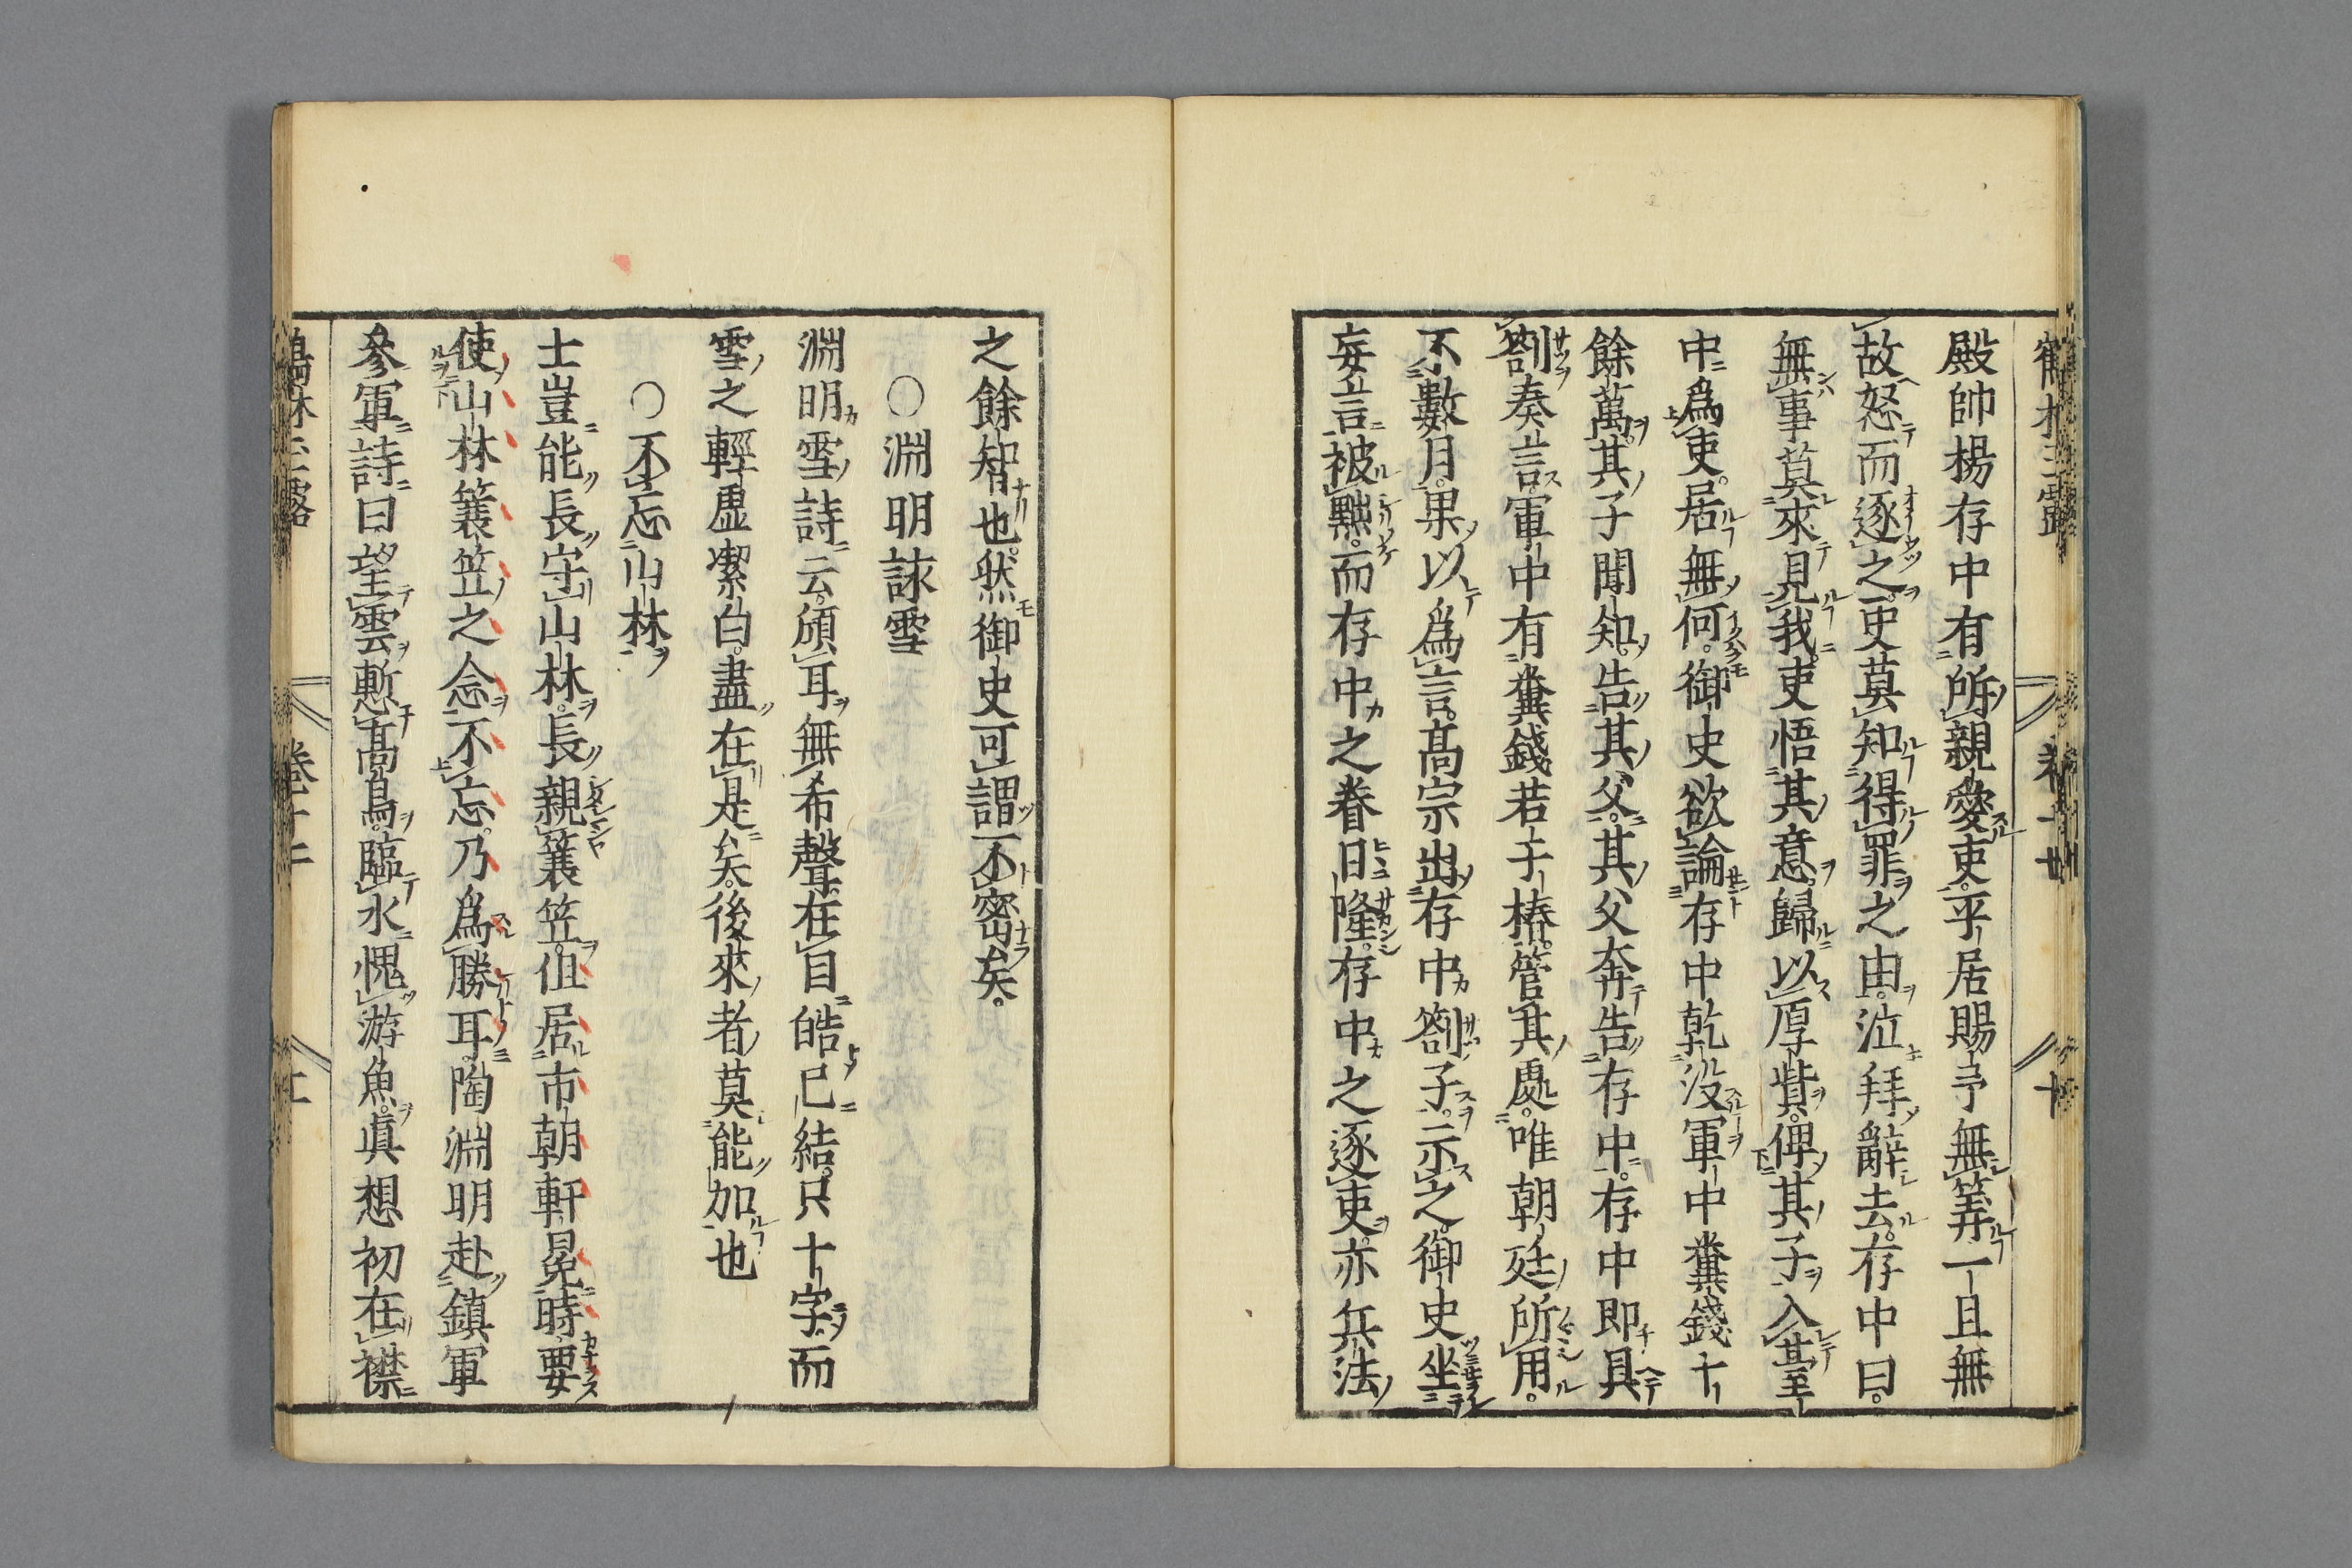 殿帥楊存中有所親愛吏平居賜予無筭一旦無
故怒而逐之吏莫知得罪之由泣拜辭去存中曰
無事莫來見我吏悟其意歸以厚貲俾其子入臺
中爲吏居無何御史欲論存中乾没軍中糞錢十
餘萬其子聞知告其父其父奔告存中存中即具
劄奏言軍中有糞錢若干樁管某處唯朝廷所用
不數月果以爲言高宗出存中劄子示之御史坐
妄言被黜而存中之眷日隆存中之逐吏亦兵法
之餘智也然御史可謂不密矣
○淵明詠雪
淵明雪詩云傾耳無希聲在目皓已結只十字而
雪之輕虛潔白盡在是矣後來者莫能加也
○不忘山林
士豈能長守山林長親蓑笠但居市朝軒冕時要
使山林蓑笠之念不忘乃爲勝耳陶淵明赴鎮軍
參軍詩曰望雲慙高鳥臨水愧游魚眞想初在襟